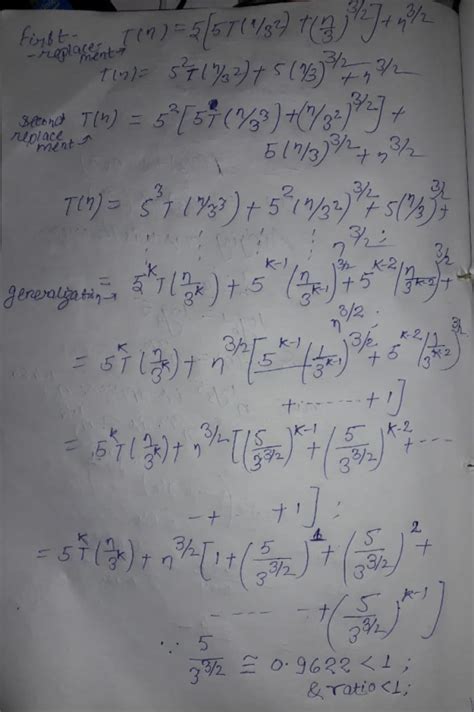 First- T(n) = 5[5T(n/3²) + (n/3)^3/2] + n^3/2
-replace-
ment→ T(n) = 5²T(n/3²) + 5(n/3)^3/2 + n^3/2
Second T(n) = 5²[5T(n/3³) + (n/3²)^3/2] +
replace
ment→ 5(n/3)^3/2 + n^3/2
T(n) = 5³T(n/3³) + 5²(n/3²)^3/2 + 5(n/3)^3/2 +
n^3/2;
generalization→ = 5^k T(n/3^k) + 5^k-1 (n/3^k-1)^3/2 + 5^k-2 (n/3^k-2)^3/2 +
n^3/2;
= 5^k T(n/3^k) + n^3/2 [5^k-1 (1/3^k-1)^3/2 + 5^k-2 (1/3^k-2)^3/2
+ ------ + 1]
= 5^k T(n/3^k) + n^3/2 [(5/3^3/2)^k-1 + (5/3^3/2)^k-2 + ---
- + + 1];
= 5^k T(n/3^k) + n^3/2 [1 + (5/3^3/2)^1 + (5/3^3/2)^2 +
------ + (5/3^3/2)^k-1]
∵ 5/3^3/2 ≅ 0.9622 < 1;
& ratio < 1;